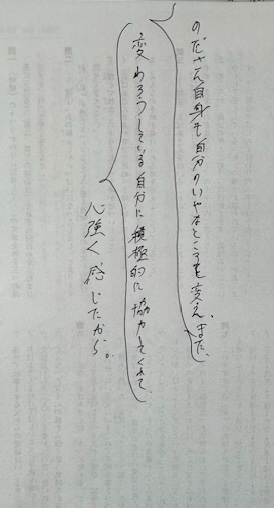 のださん自身も自分のいやなところを変え、また、
変わろうしている自分に積極的に協力してくれて、
心強く感じたから。